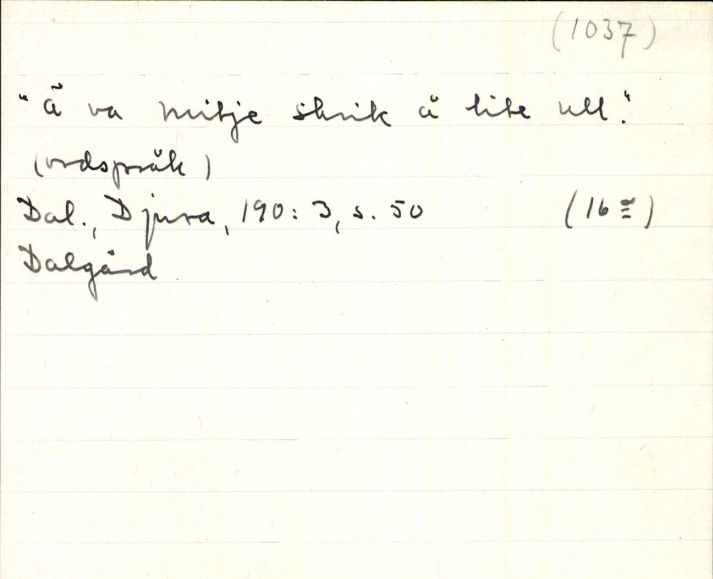 (1037)
"Ä va mitje skrik å lite ull."
(ordspråk)
Dal., Djura, 190:3, s. 50 (16
Dalgård